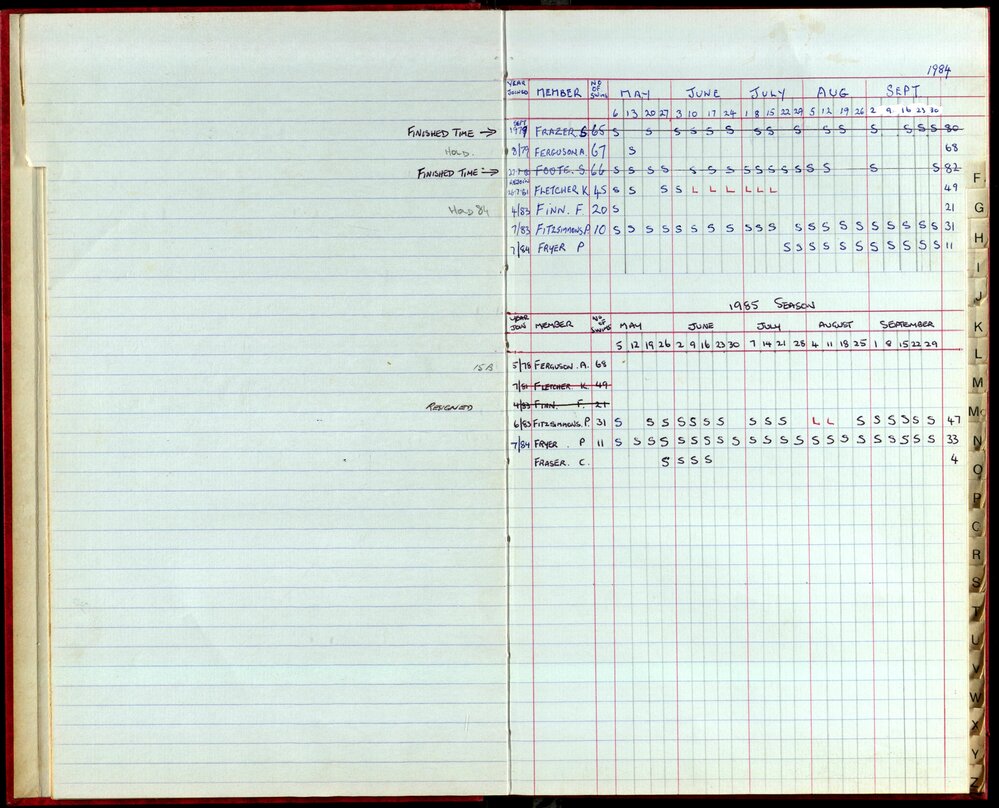 1984
YEAR JOINED MEMBER NO OF SWIMS MAY JUNE JULY AUG SEPT
6 13 20 27 3 10 17 24 1 8 15 22 29 5 12 19 26 2 9 16 23 30
FINISHED TIME → SEPT 1979 FRAZER. S 65 S S S S S S S S S S S S S S S 80
HOLD. 8/79 FERGUSON A. 67 S 68
FINISHED TIME → FOOTE. S. 66 S S S S S S S S S S S S S S S S 82
REJOIN FLETCHER K 45 S S S S L L L L L L 49
HOLD 84 4/83 FINN. F 20 S 21
7/83 FITZSIMMONS. P. 10 S S S S S S S S S S S S S S S S S S S S S 31
7/84 FRYER P S S S S S S S S S S S 11
1985 SEASON
YEAR JOIN MEMBER NO OF SWIMS MAY JUNE JULY AUGUST SEPTEMBER
5 12 19 26 2 9 16 23 30 7 14 21 28 4 11 18 25 1 8 15 22 29
5/78 FERGUSON. A. 68
7/81 FLETCHER K. 49
RESIGNED 4/83 FINN. F. 21
6/83 FITZSIMMONS. P. 31 S S S S S S S S S S L L S S S S S S 47
7/84 FRYER . P 11 S S S S S S S S S S S S S S S S S S S S S S 33
FRASER. C. S S S S 4
F
G
H
I
J
K
L
M
M
N
O
P
Q
R
S
T
U
V
W
X
Y
Z